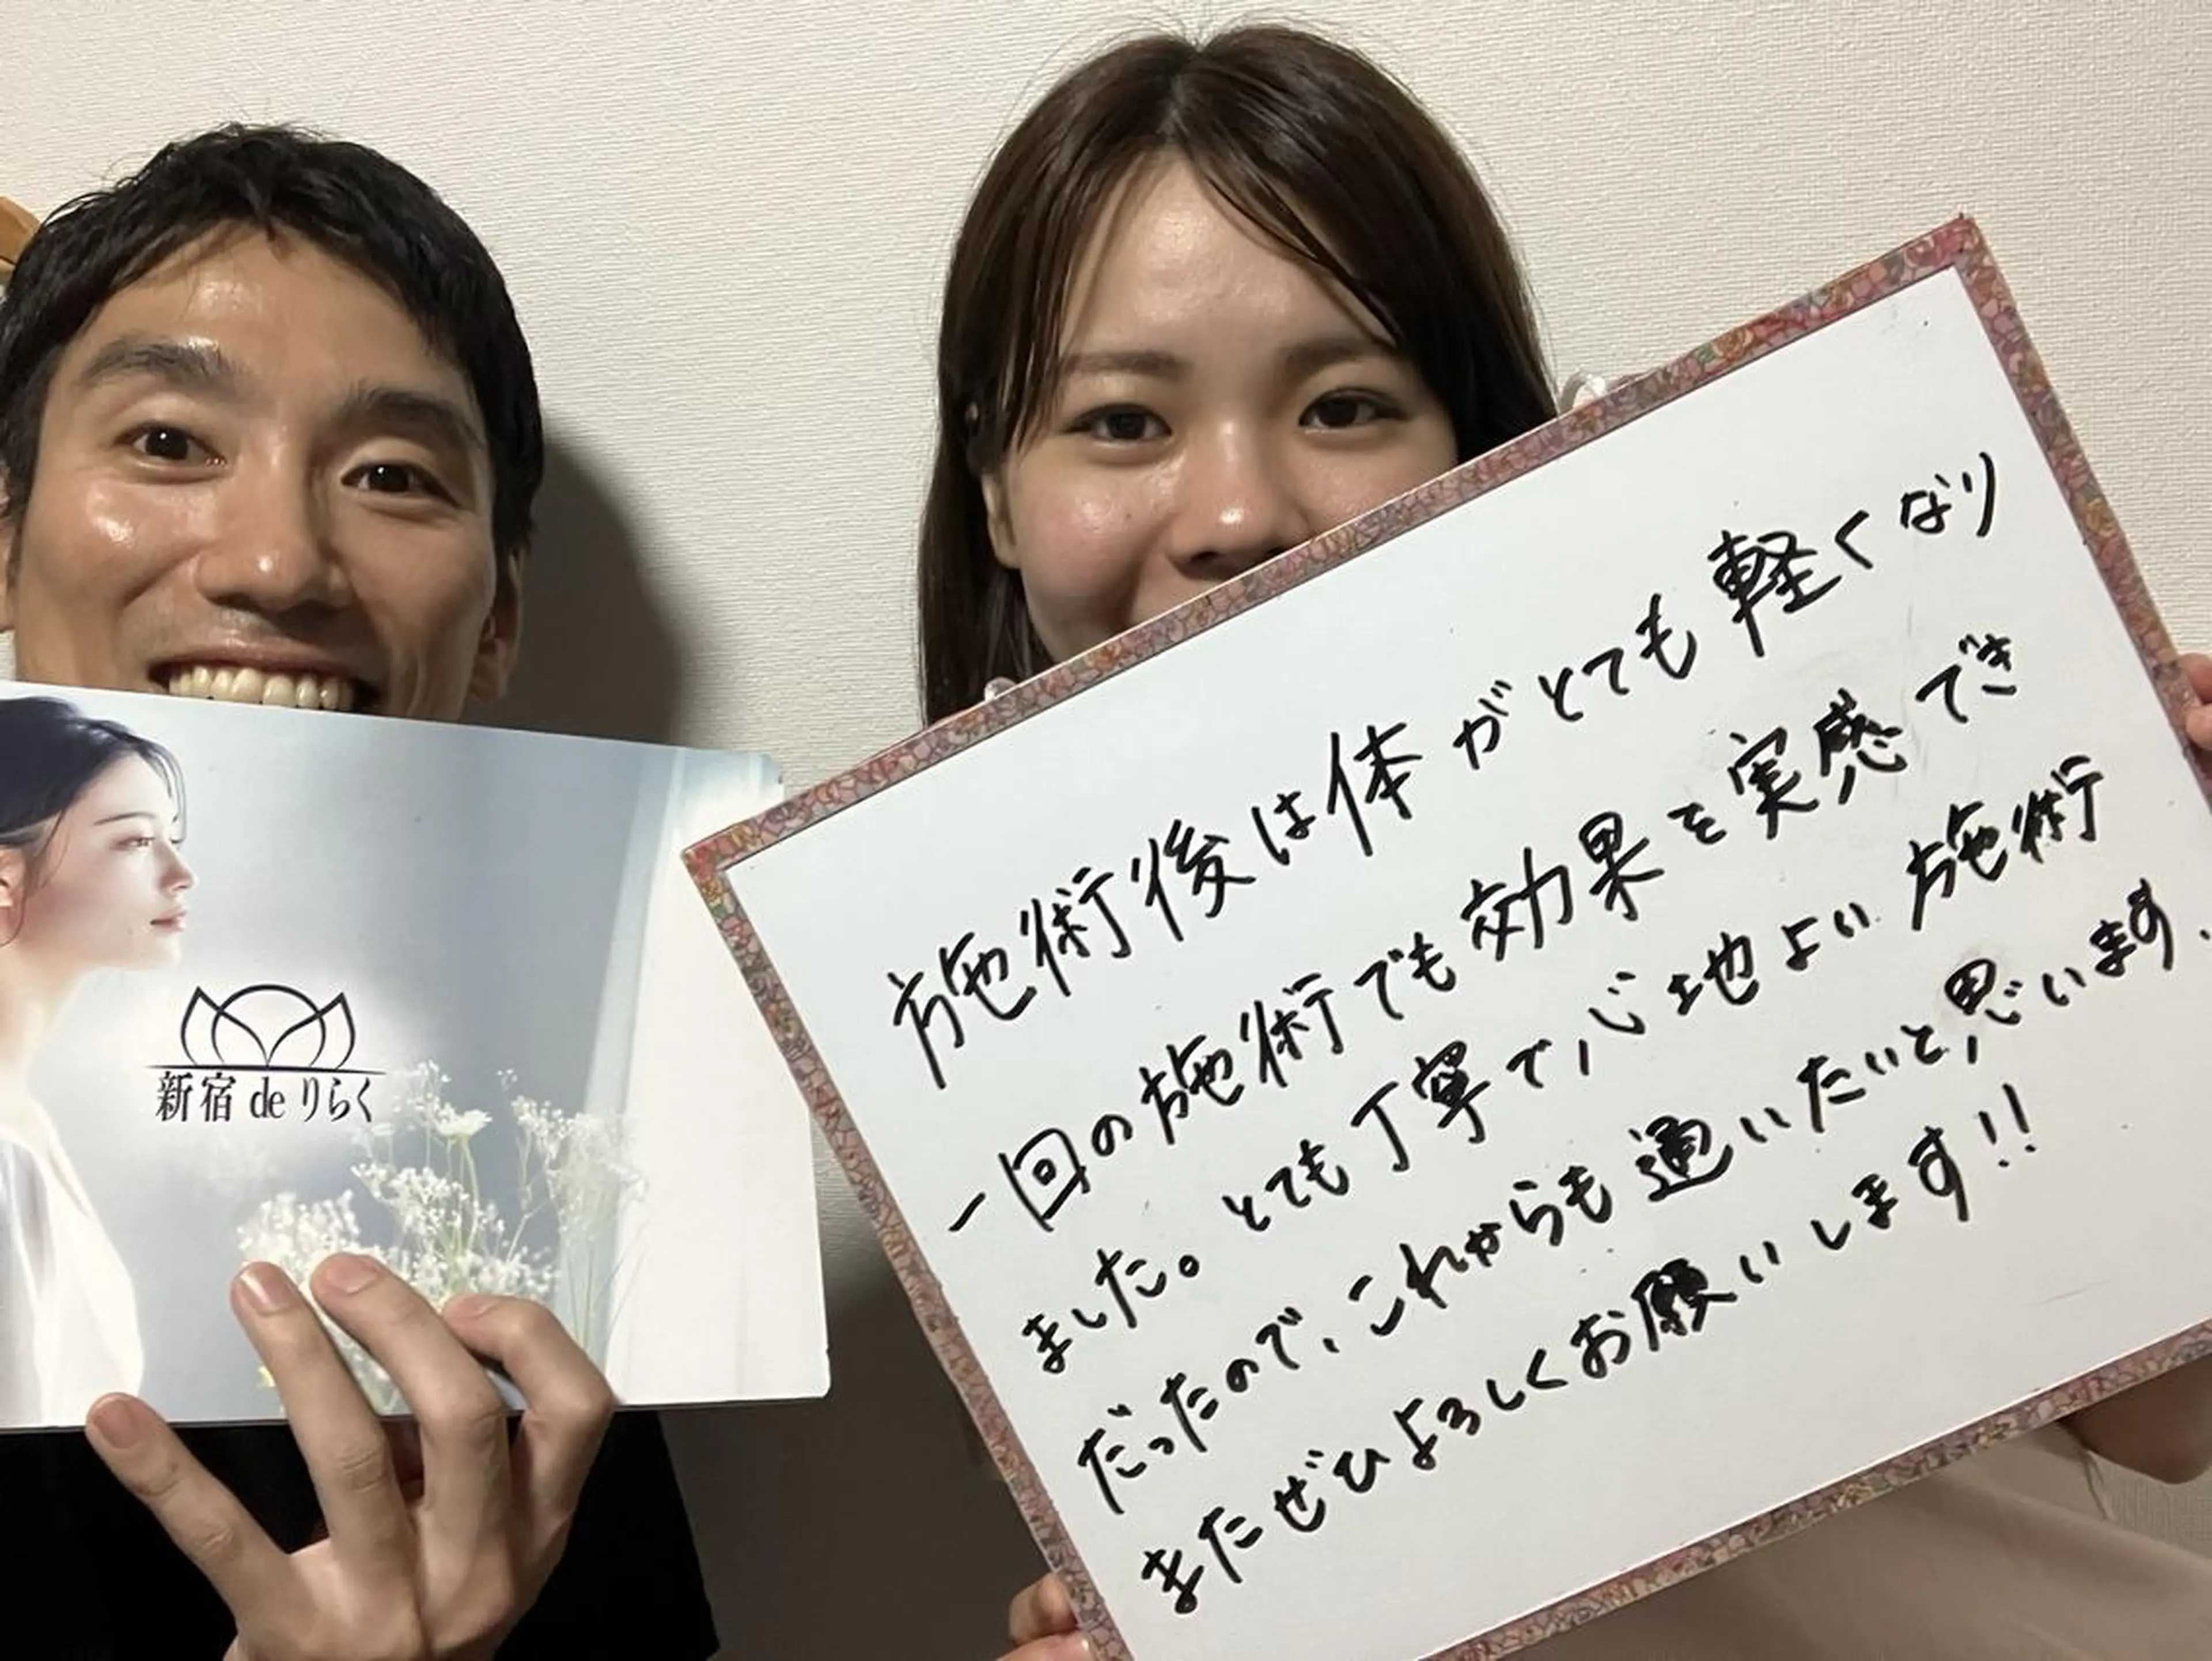 新宿 de りらく
施術後は体がとても軽くなり
一回の施術でも効果を実感でき
ました。とても丁寧で心地よい施術
だったので、これからも通いたいと思います.
またぜひよろしくお願いします!!